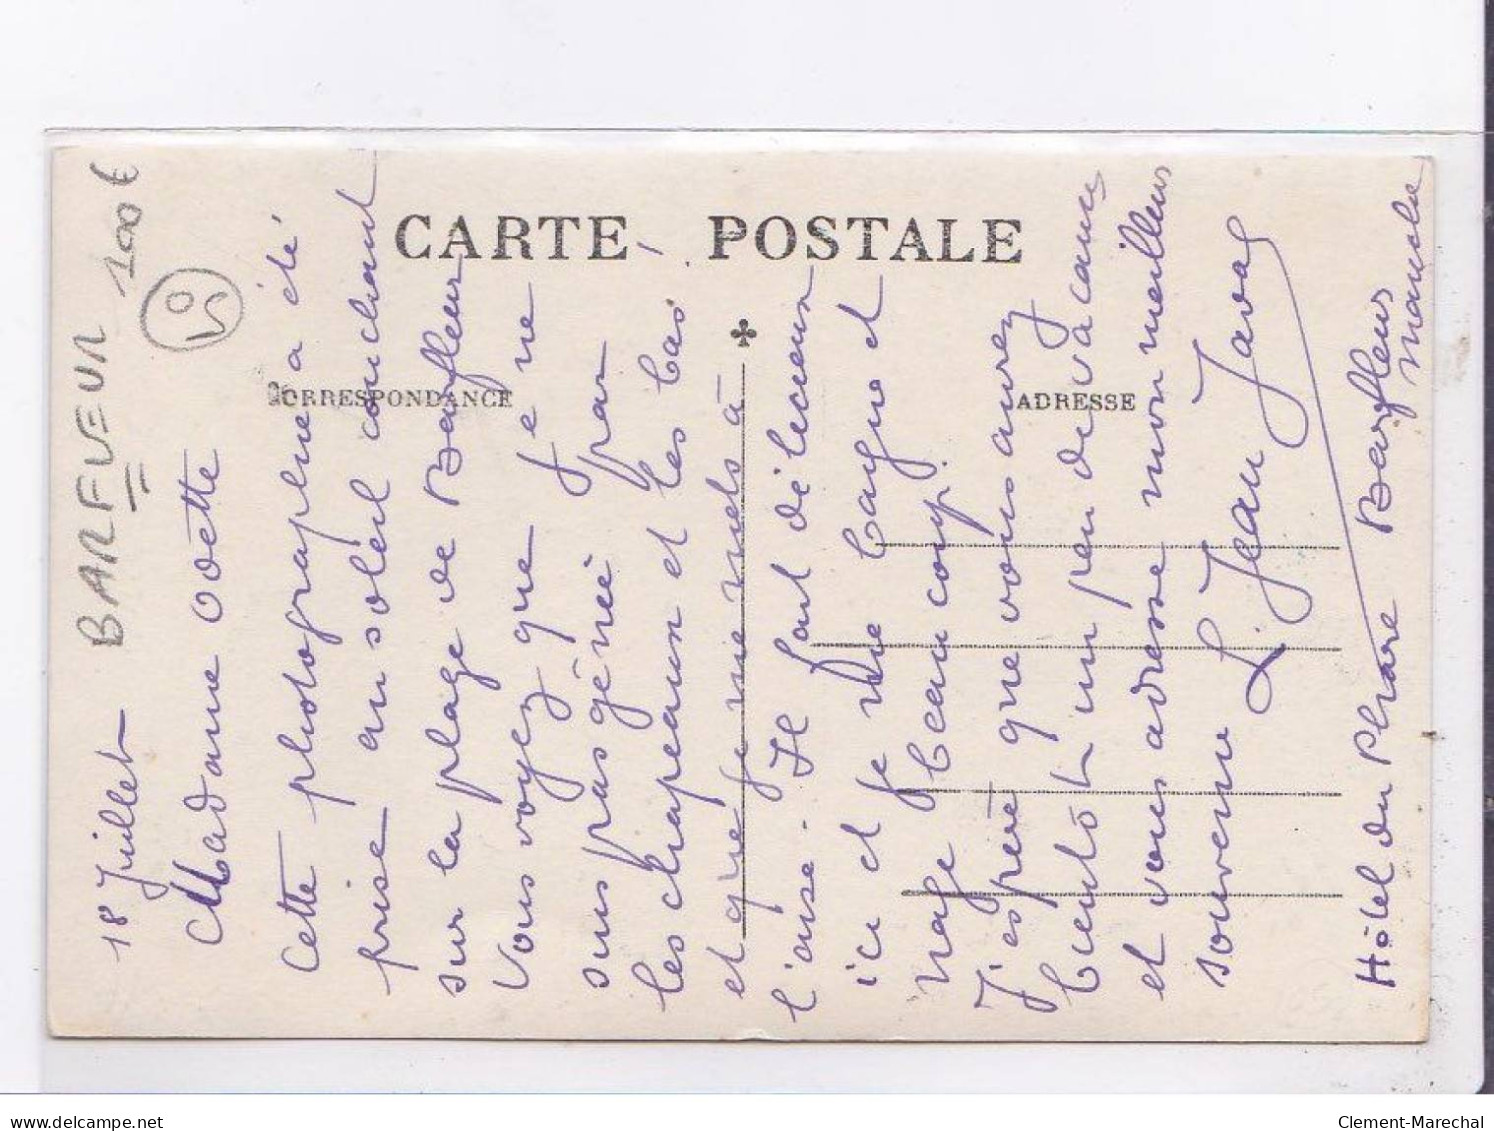 CARTE POSTALE
CORRESPONDANCE
ADRESSE
BARFLEUR 100€
50
18 Juillet
Madame Odette
Cette photographie a été
prise au soleil couchant
sur la plage de Barfleur
Vous voyez que je ne
suis pas gêné par
les chapeaux et les bas
et que je me mets à
l'aise. Il fait délicieux
ici et je me baigne et
nage beaucoup.
J'espère que vous aurez
bientôt un peu de vacances
et vous adresse mon meilleur
souvenir
Jean
Hôtel du Phare Barfleur
Manche
www.delcampe.net
Clement-Marechal